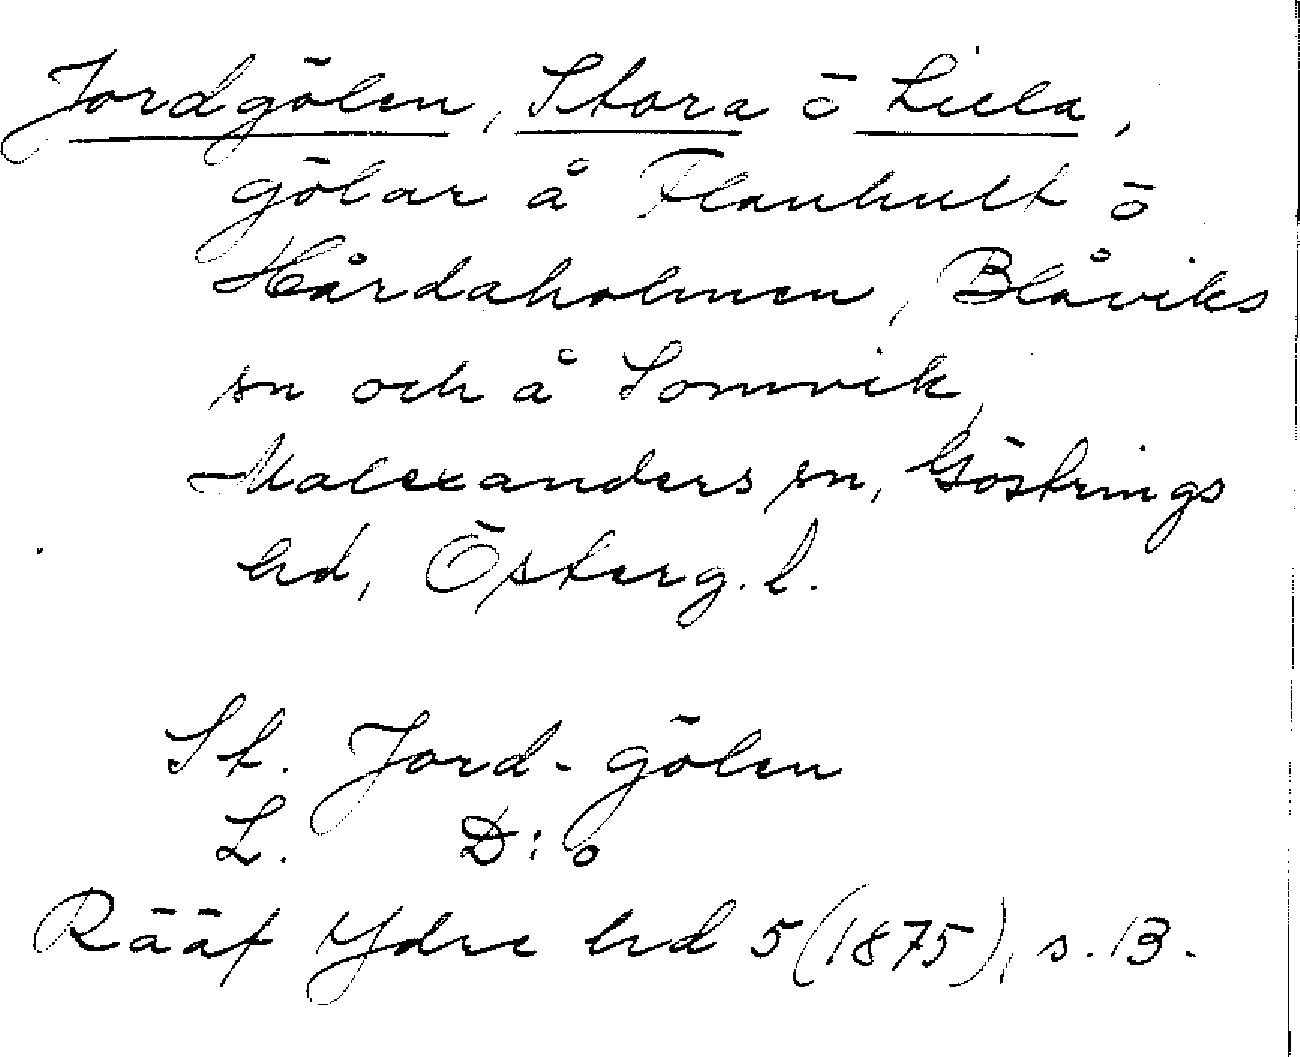 Jordgölen, Stora ō Lilla,
gölar å Flanhult ō
Hårdaholmen, Blåviks
sn och å Somvik,
Malexanders sn, Göstrings
hd, Österg. l.
St. Jord-gölen
L. D:o
Rääf Ydre hd 5 (1875), s. 13.